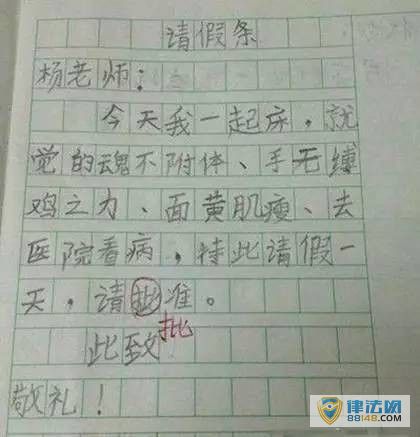 请假条
杨老师：
今天我一起床，就
觉的魂不附体、手无缚
鸡之力、面黄肌瘦、去
医院看病，特此请假一
天，请批准。
批
此致
敬礼！
律法网
88148.COM